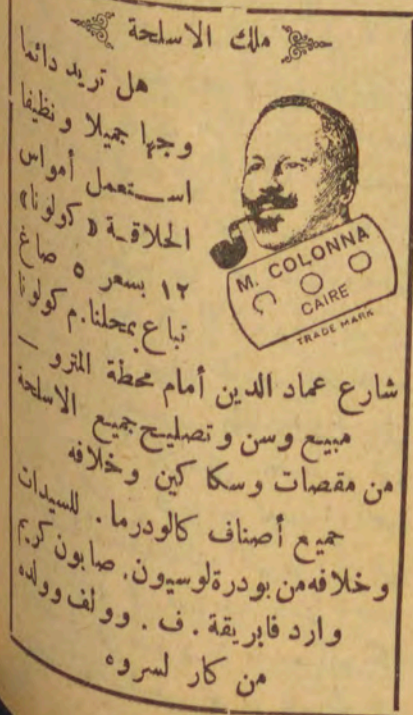 ملك الاسلحة
هل تريد دائما
وجها جميلا ونظيفا
استعمل أمواس
الحلاقة « كولونا »
١٢ بسعر ٥ صاغ
تباع بمحلنا . م كولونا
M. COLONNA
CAIRE
TRADE MARK
شارع عماد الدين أمام محطة المترو —
مبيع وسن وتصليح جميع الاسلحة
من مقصات وسكا كين وخلافه
جميع أصناف كالودرما . للسيدات
وخلافه من بودرة لوسيون . صابون كريم
وارد فابريقة . ف . وولف وولده
من كار لسروه